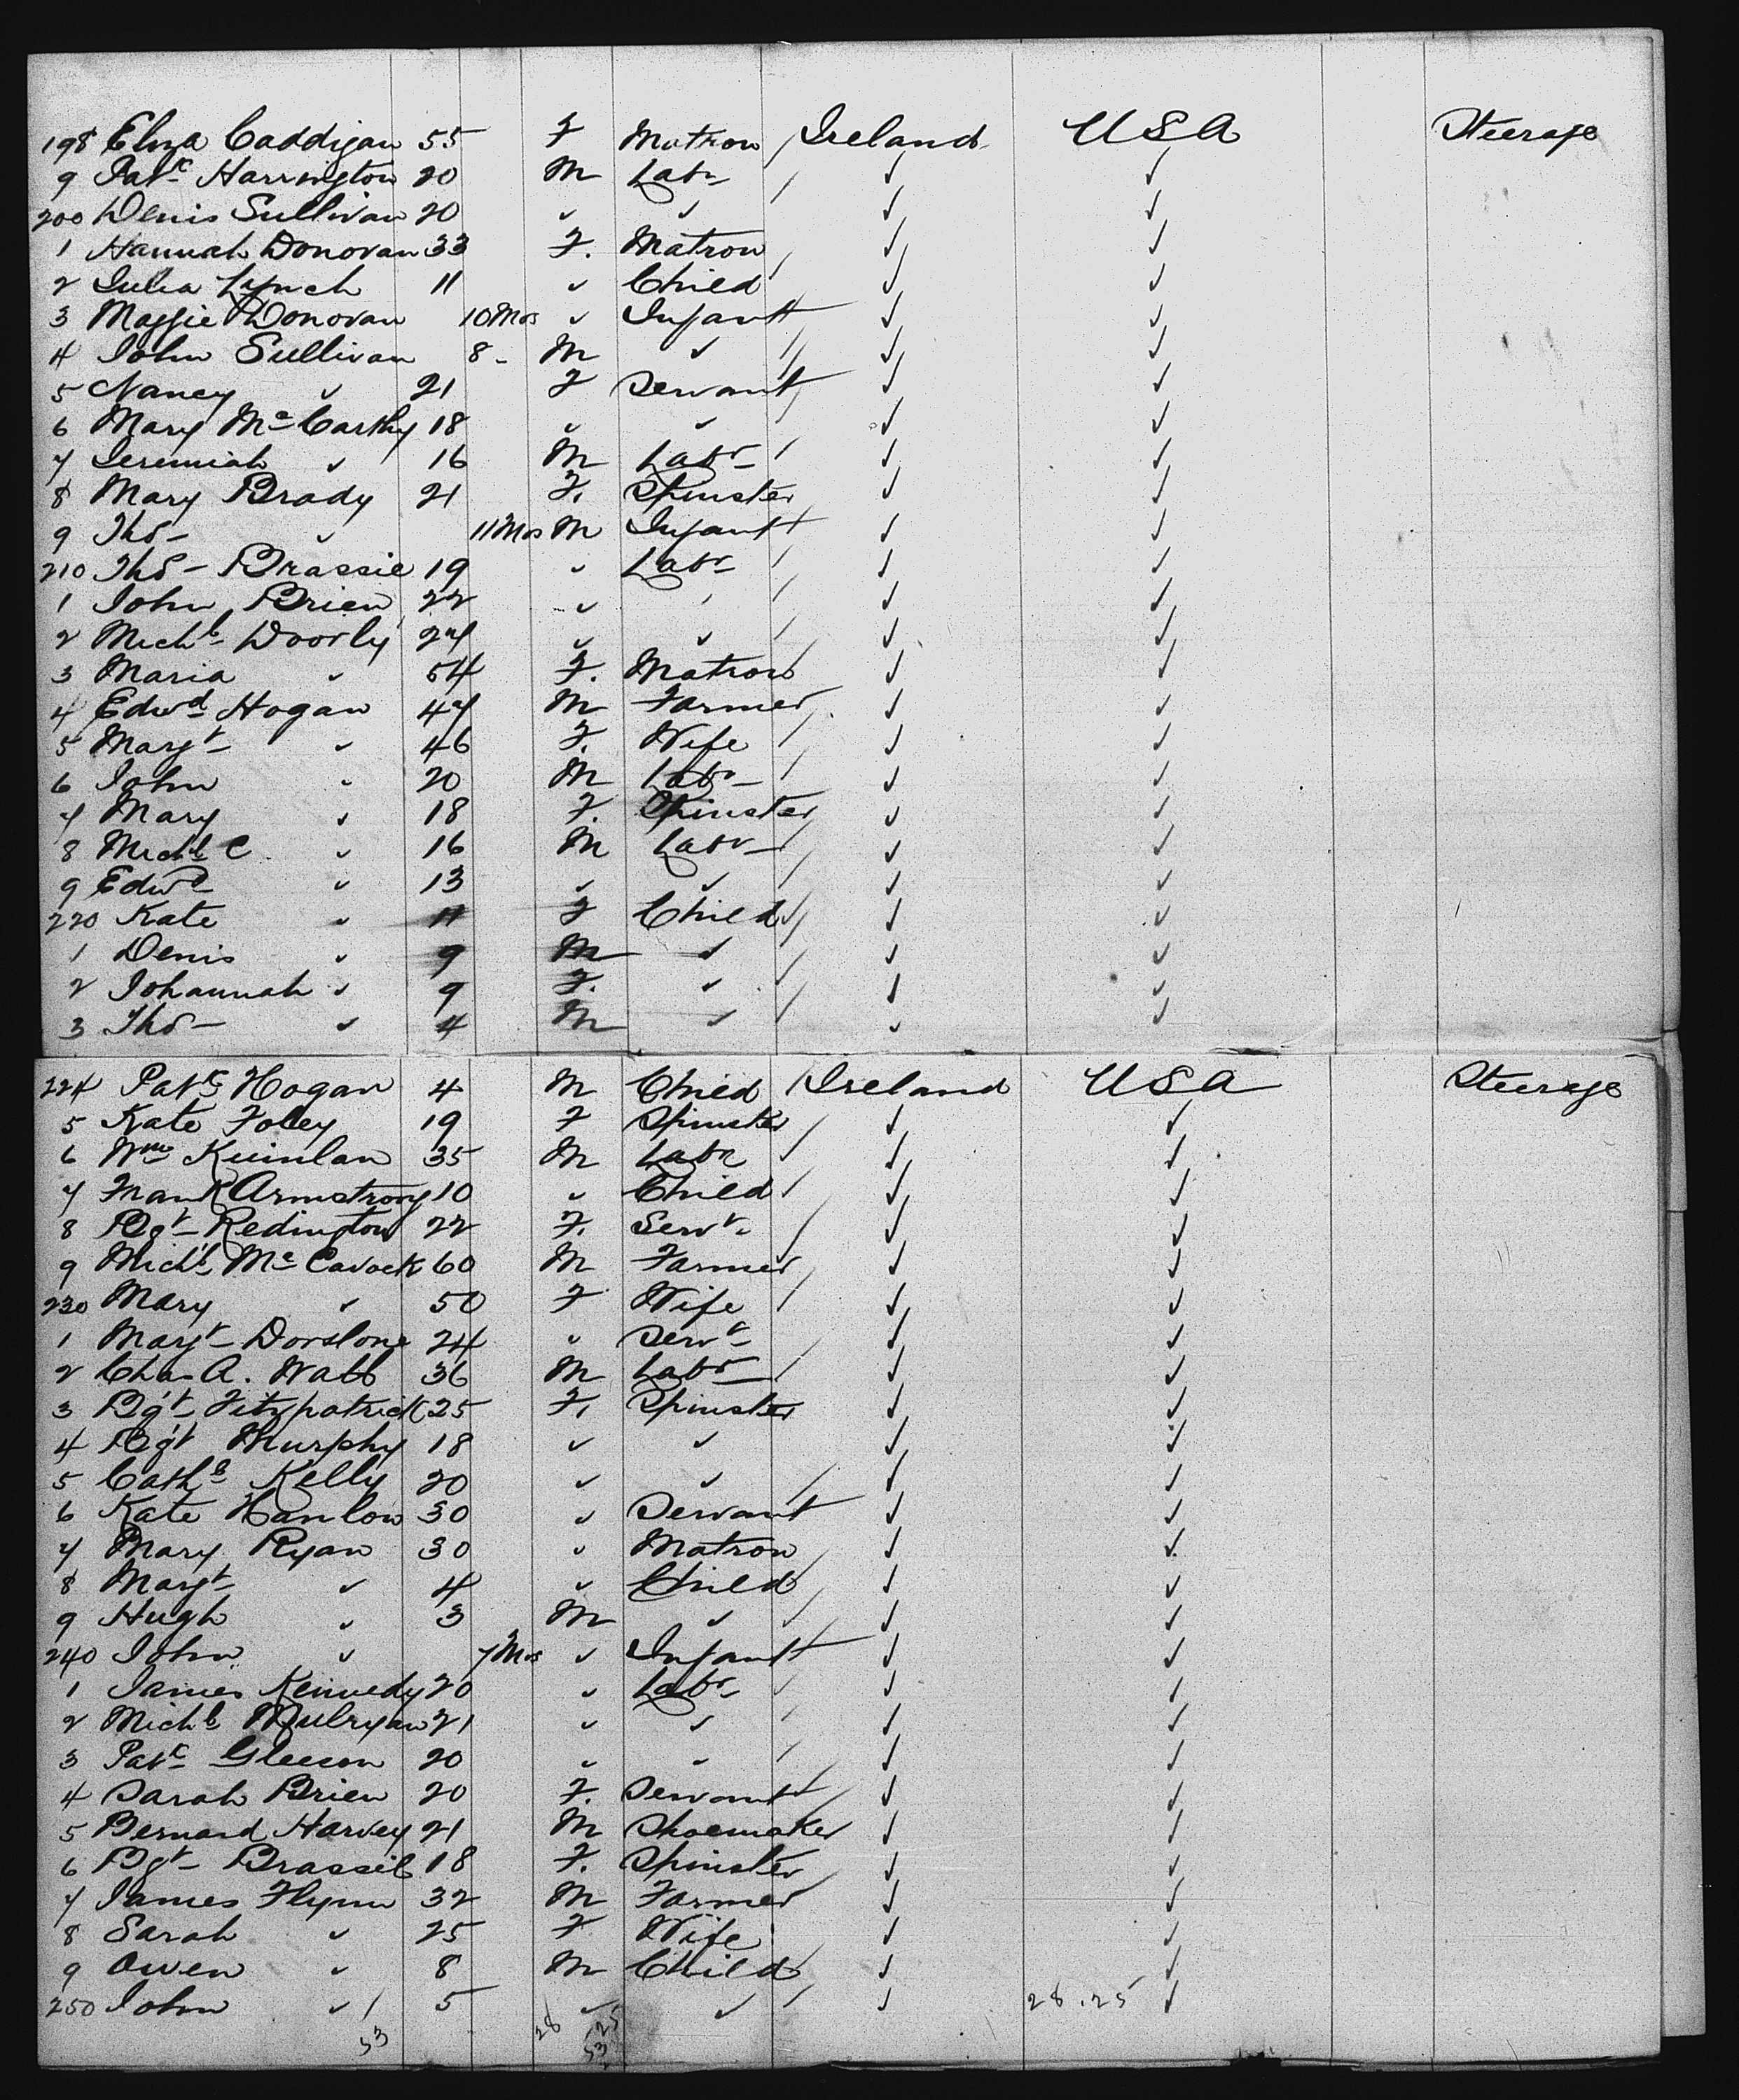 198 Eliza Caddigan 55 F Matron Ireland USA Steerage
9 Patc Harrington 20 M Labr ✓ ✓
200 Denis Sullivan 20 ✓ ✓ ✓ ✓
1 Hannah Donovan 33 F. Matron ✓ ✓
2 Julia Lynch 11 ✓ Child ✓ ✓
3 Maggie Donovan 10 Mos ✓ Infant ✓ ✓
4 John Sullivan 8 - M ✓ ✓ ✓
5 Nancy ✓ 21 F Servant ✓ ✓
6 Mary Mc Carthy 18 ✓ ✓ ✓ ✓
7 Jeremiah ✓ 16 M Labr ✓ ✓
8 Mary Brady 21 F. Spinster ✓ ✓
9 Thos ✓ 11 Mos M Infant ✓ ✓
210 Thos Brassie 19 ✓ Labr ✓ ✓
1 John Brien 22 ✓ ✓ ✓ ✓
2 Michl Doorly 27 ✓ ✓ ✓ ✓
3 Maria ✓ 54 F. Matron ✓ ✓
4 Edwd Hogan 47 M Farmer ✓ ✓
5 Margt ✓ 46 F. Wife ✓ ✓
6 John ✓ 20 M Labr ✓ ✓
7 Mary ✓ 18 F. Spinster ✓ ✓
8 Michl C ✓ 16 M Labr ✓ ✓
9 Edwd ✓ 13 ✓ ✓ ✓ ✓
220 Kate ✓ 11 F Child ✓ ✓
1 Denis ✓ 9 M ✓ ✓ ✓
2 Johannah ✓ 9 F. ✓ ✓ ✓
3 Thos ✓ 4 M ✓ ✓ ✓
224 Patc Hogan 4 M Child Ireland USA Steerage
5 Kate Foley 19 F Spinster ✓ ✓
6 Wm Kuinlan 35 M Labr ✓ ✓
7 Frank Armstrong 10 ✓ Child ✓ ✓
8 Bgt Redington 22 F. Servt ✓ ✓
9 Michl Mc Cavock 60 M Farmer ✓ ✓
230 Mary ✓ 50 F Wife ✓ ✓
1 Margt 24 ✓ Servt ✓ ✓
2 Cha A. Wabb 36 M Labr ✓ ✓
3 Bgt Fitzpatrick 25 F. Spinster ✓ ✓
4 Bgt Murphy 18 ✓ ✓ ✓ ✓
5 Cathe Kelly 20 ✓ ✓ ✓ ✓
6 Kate Hanlon 30 ✓ Servant ✓ ✓
7 Mary Ryan 30 ✓ Matron ✓ ✓
8 Margt ✓ 4 ✓ Child ✓ ✓
9 Hugh ✓ 3 M ✓ ✓ ✓
240 John ✓ 7 Mos ✓ Infant ✓ ✓
1 James Kennedy 20 ✓ Labr ✓ ✓
2 Michl Mulryan 21 ✓ ✓ ✓ ✓
3 Patc Gleeson 20 ✓ ✓ ✓ ✓
4 Sarah Brien 20 F. Servant ✓ ✓
5 Bernard Harvey 21 M Shoemaker ✓ ✓
6 Bgt Brassil 18 F. Spinster ✓ ✓
7 James Flynn 32 M Farmer ✓ ✓
8 Sarah ✓ 25 F Wife ✓ ✓
9 Owen ✓ 8 M Child ✓ ✓
250 John ✓ 5 ✓ ✓ ✓ 28.25 ✓
53 28 25
53